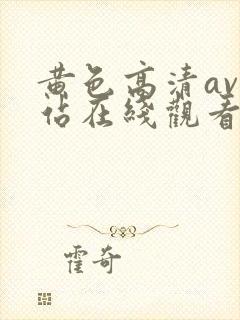 黄色高清av
佔在綫觀看
霍奇